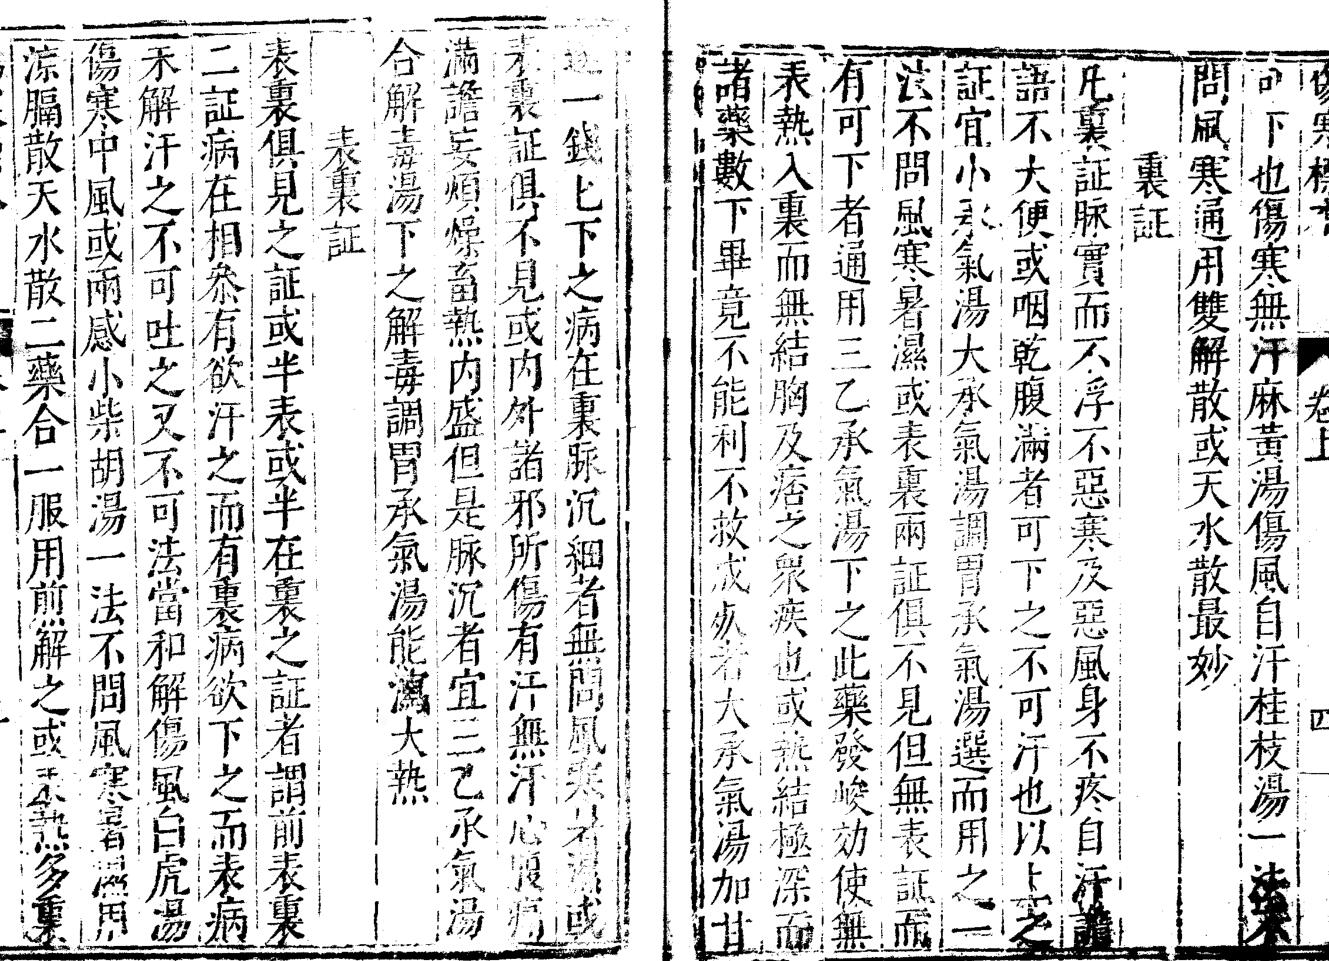 傷寒標本
卷上
四
可下也傷寒無汗麻黃湯傷風自汗桂枝湯一法不
問風寒通用雙解散或天水散最妙
裏証
凡裏証脉實而不浮不惡寒及惡風身不疼自汗譫
語不大便或咽乾腹滿者可下之不可汗也以上之
証宜小承氣湯大承氣湯調胃承氣湯選而用之一
法不問風寒暑濕或表裏兩証俱不見但無表証而
有可下者通用三乙承氣湯下之此藥發峻効使無
表熱入裏而無結胸及痞之衆疾也或熱結極深而
諸藥數下畢竟不能利不救成㱙者大承氣湯加甘
遂一錢匕下之病在裏脉沉細者無問風寒暑濕或
表裏証俱不見或内外諸邪所傷有汗無汗心腹痛
滿譫妄煩燥畜熱内盛但是脉沉者宜三乙承氣湯
合解毒湯下之解毒調胃承氣湯能瀉大熱
表裏証
表裏俱見之証或半表或半在裏之証者謂前表裏
二証病在相叅有欲汗之而有裏病欲下之而表病
未解汗之不可吐之又不可法當和解傷風白虎湯
傷寒中風或兩感小柴胡湯一法不問風寒暑濕用
涼膈散天水散二藥合一服用煎解之或表熱多裏